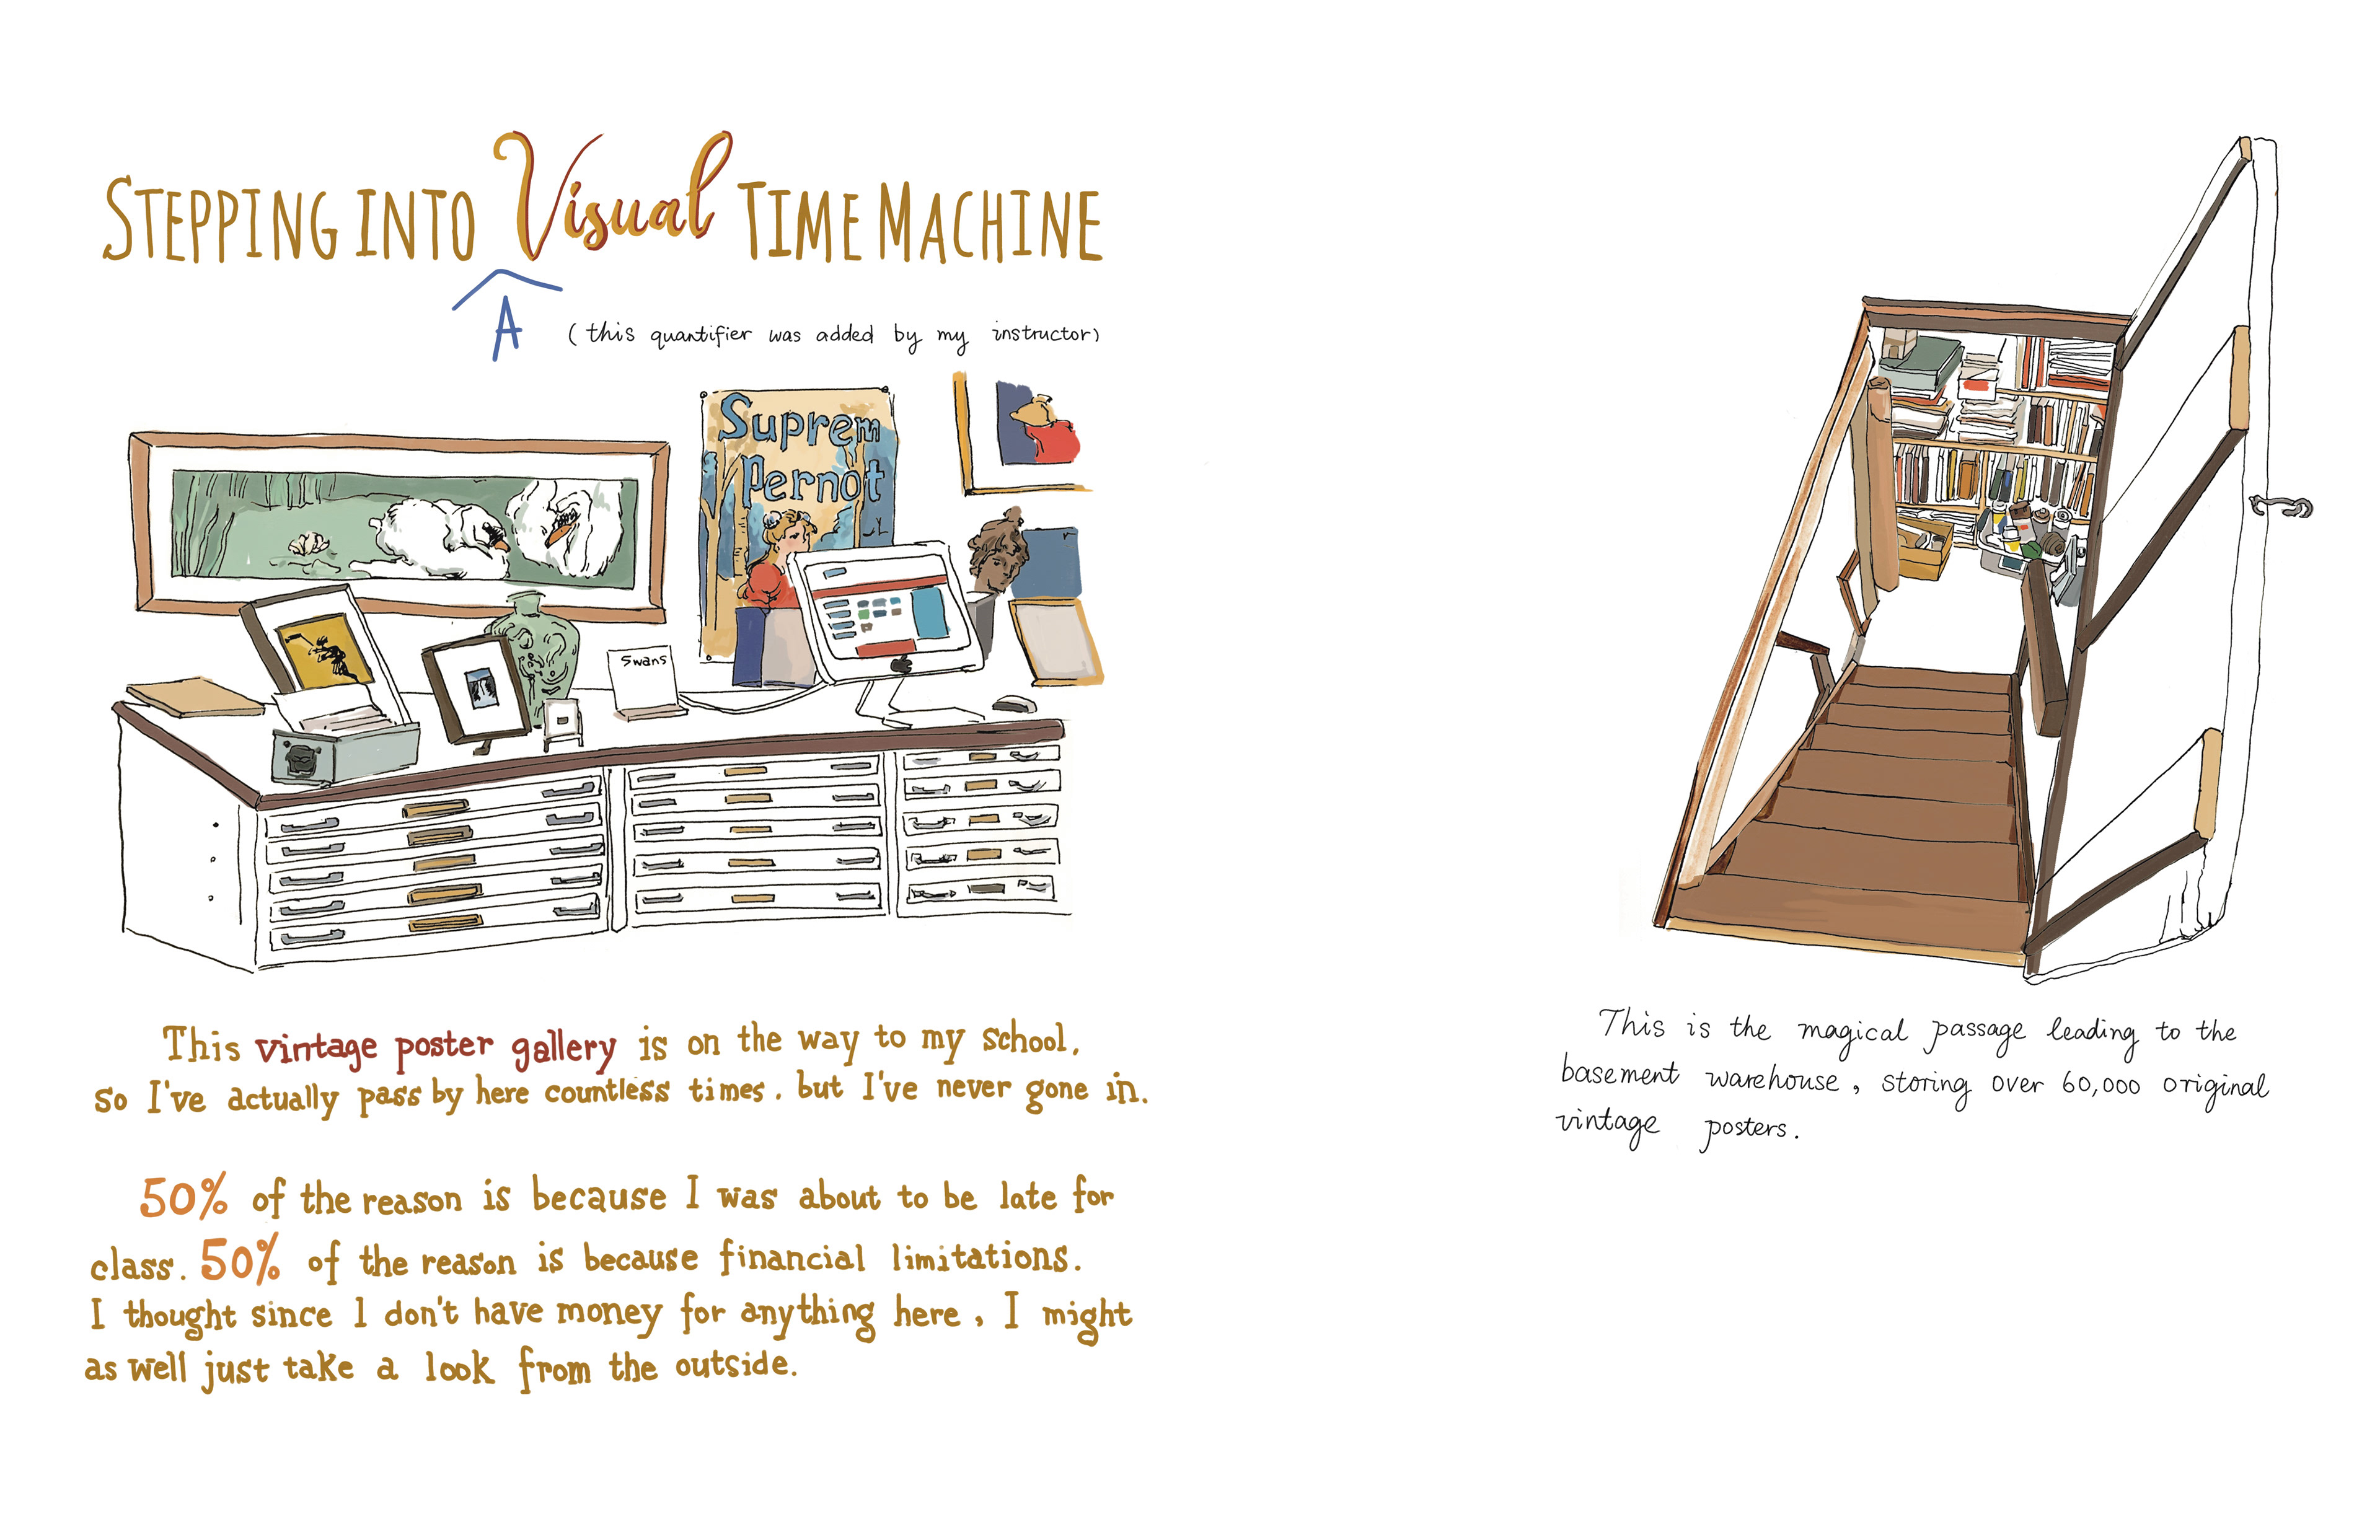 STEPPING INTO Visual TIME MACHINE
A (this quantifier was added by my instructor)
Suprem
Pernot
Swans
This vintage poster gallery is on the way to my school,
so I've actually pass by here countless times. but I've never gone in.
50% of the reason is because I was about to be late for
class. 50% of the reason is because financial limitations.
I thought since I don't have money for anything here, I might
as well just take a look from the outside.
This is the magical passage leading to the
basement warehouse, storing over 60,000 original
vintage posters.